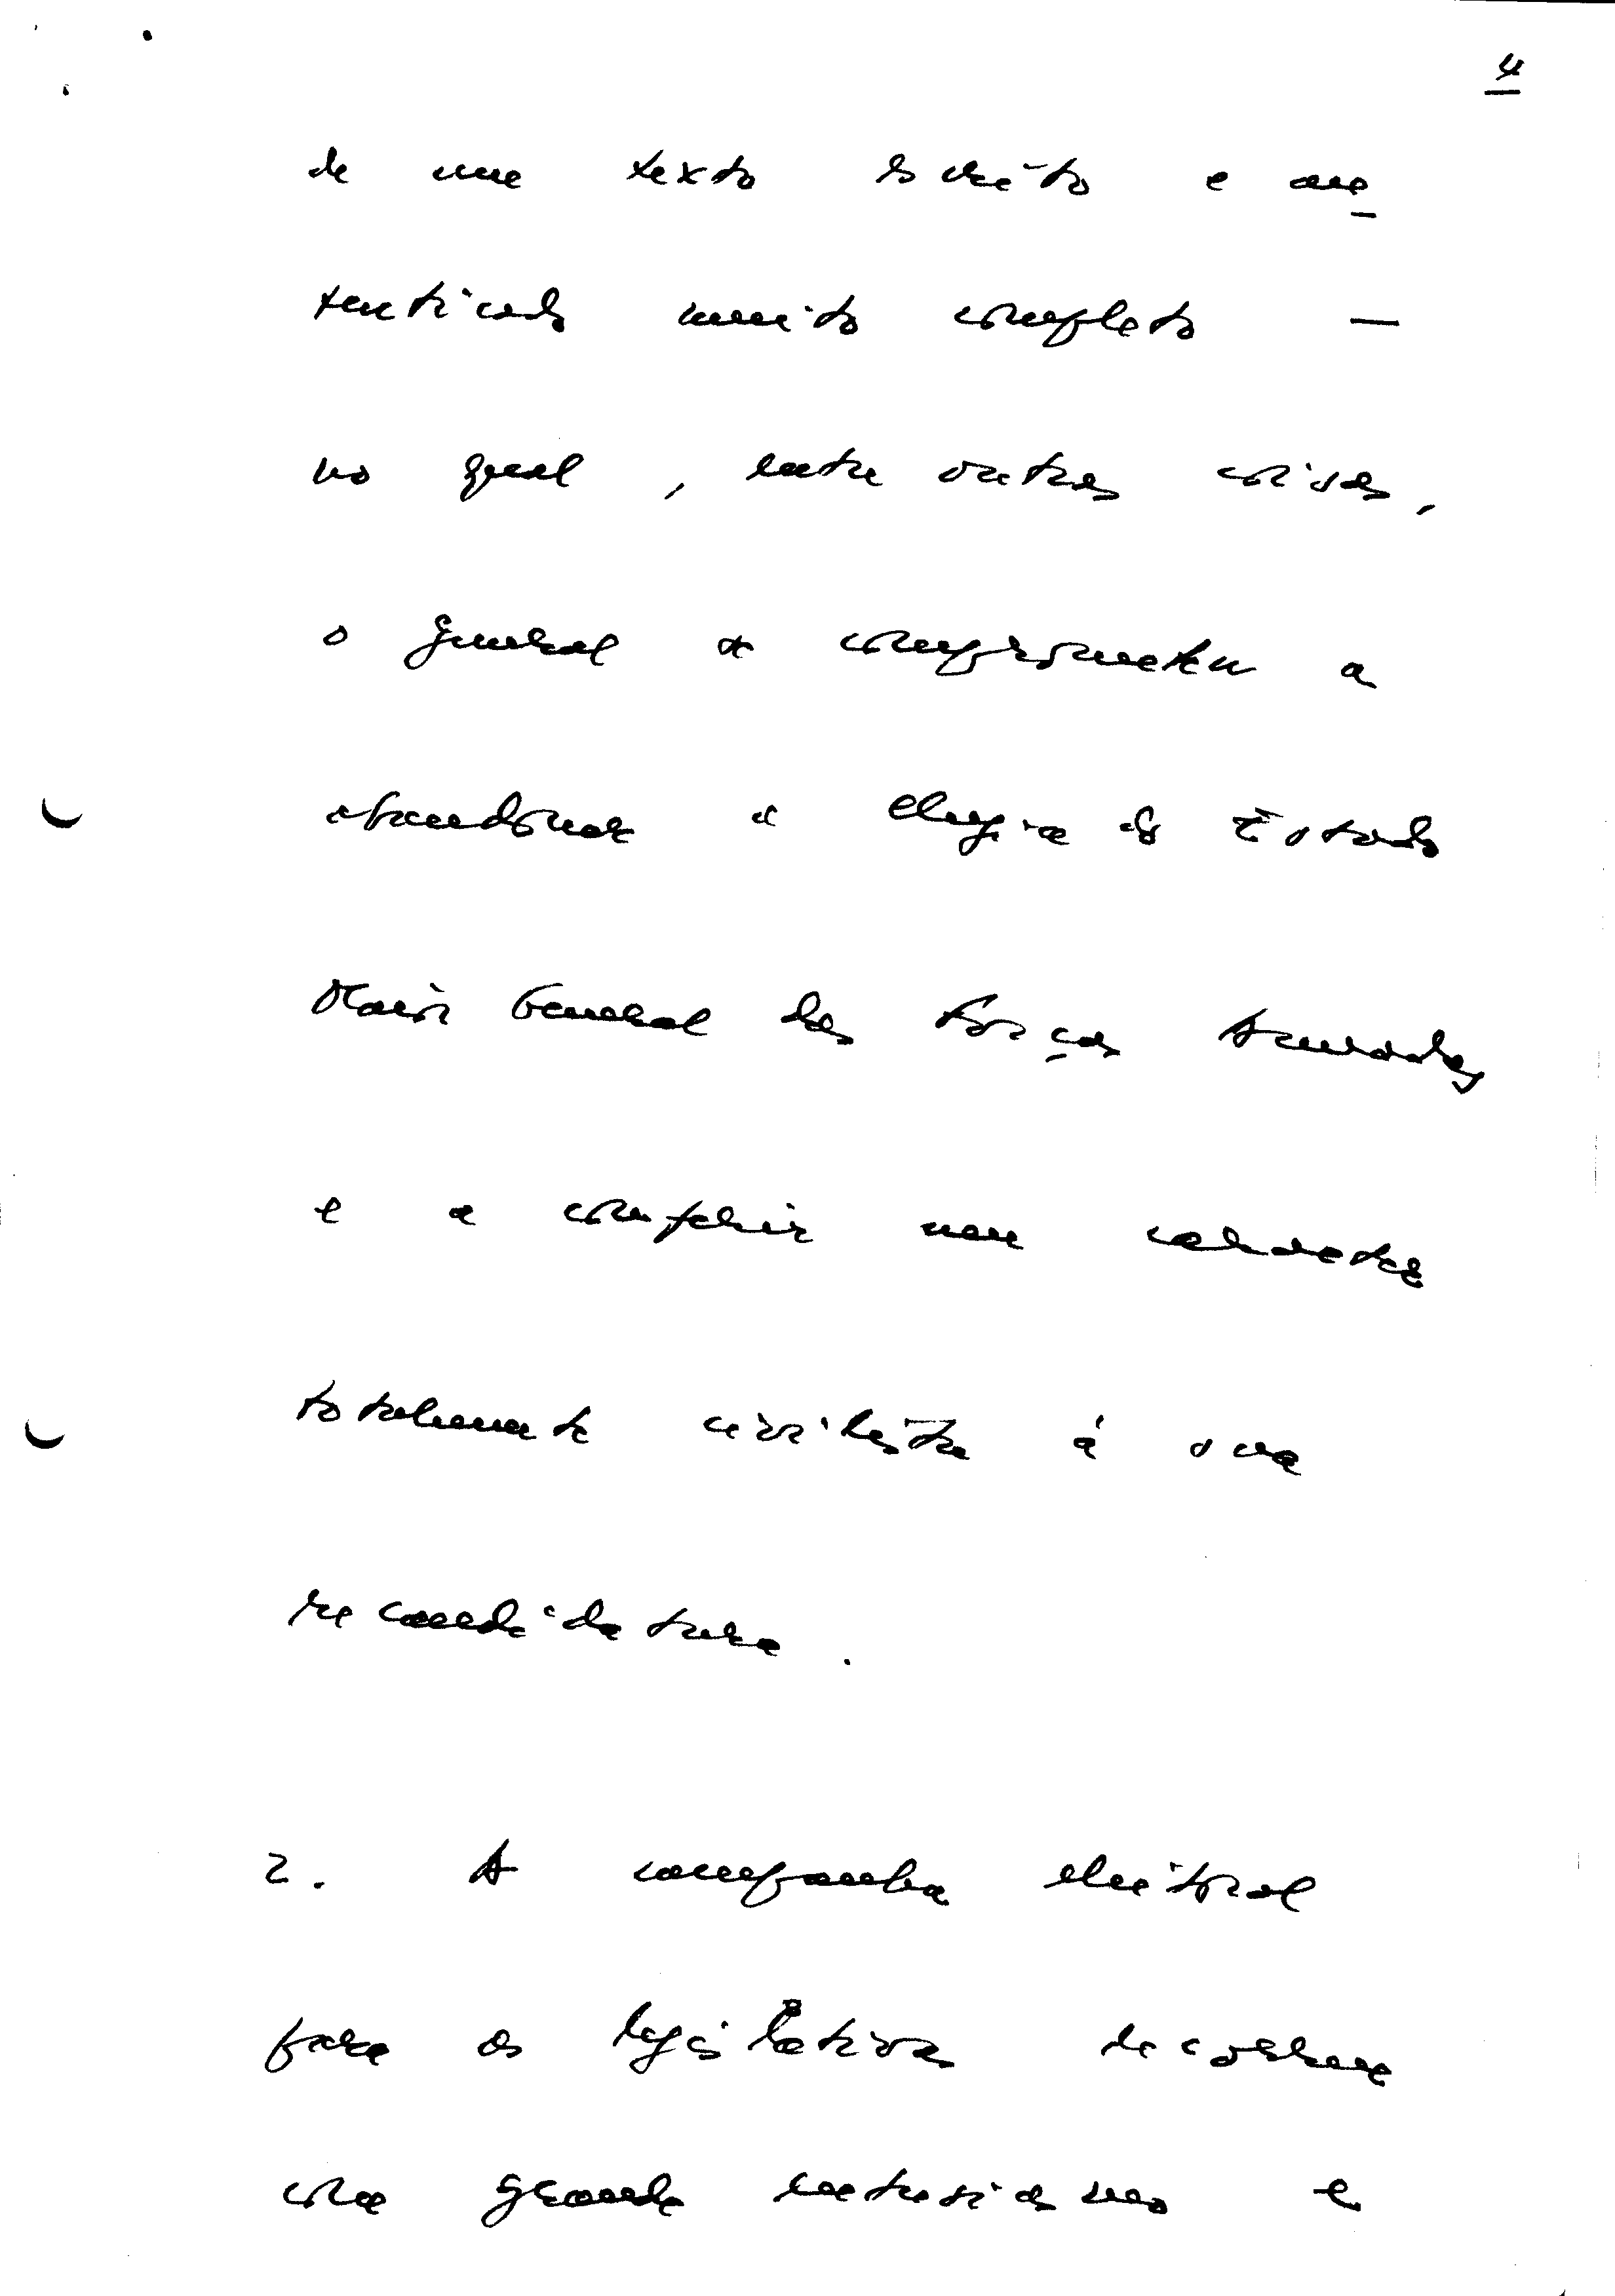 4
de um texto escrito e au
tenticado muito completo —
no qual, entre outras coisas,
o general se comprometeu a
abandonar a chefia do Estado
Maior General das Forças Armadas
e a conferir um carácter
totalmente civilista à sua
recandidatura.
2. A campanha eleitoral
para as legislativas decorreu
com grande entusiasmo e